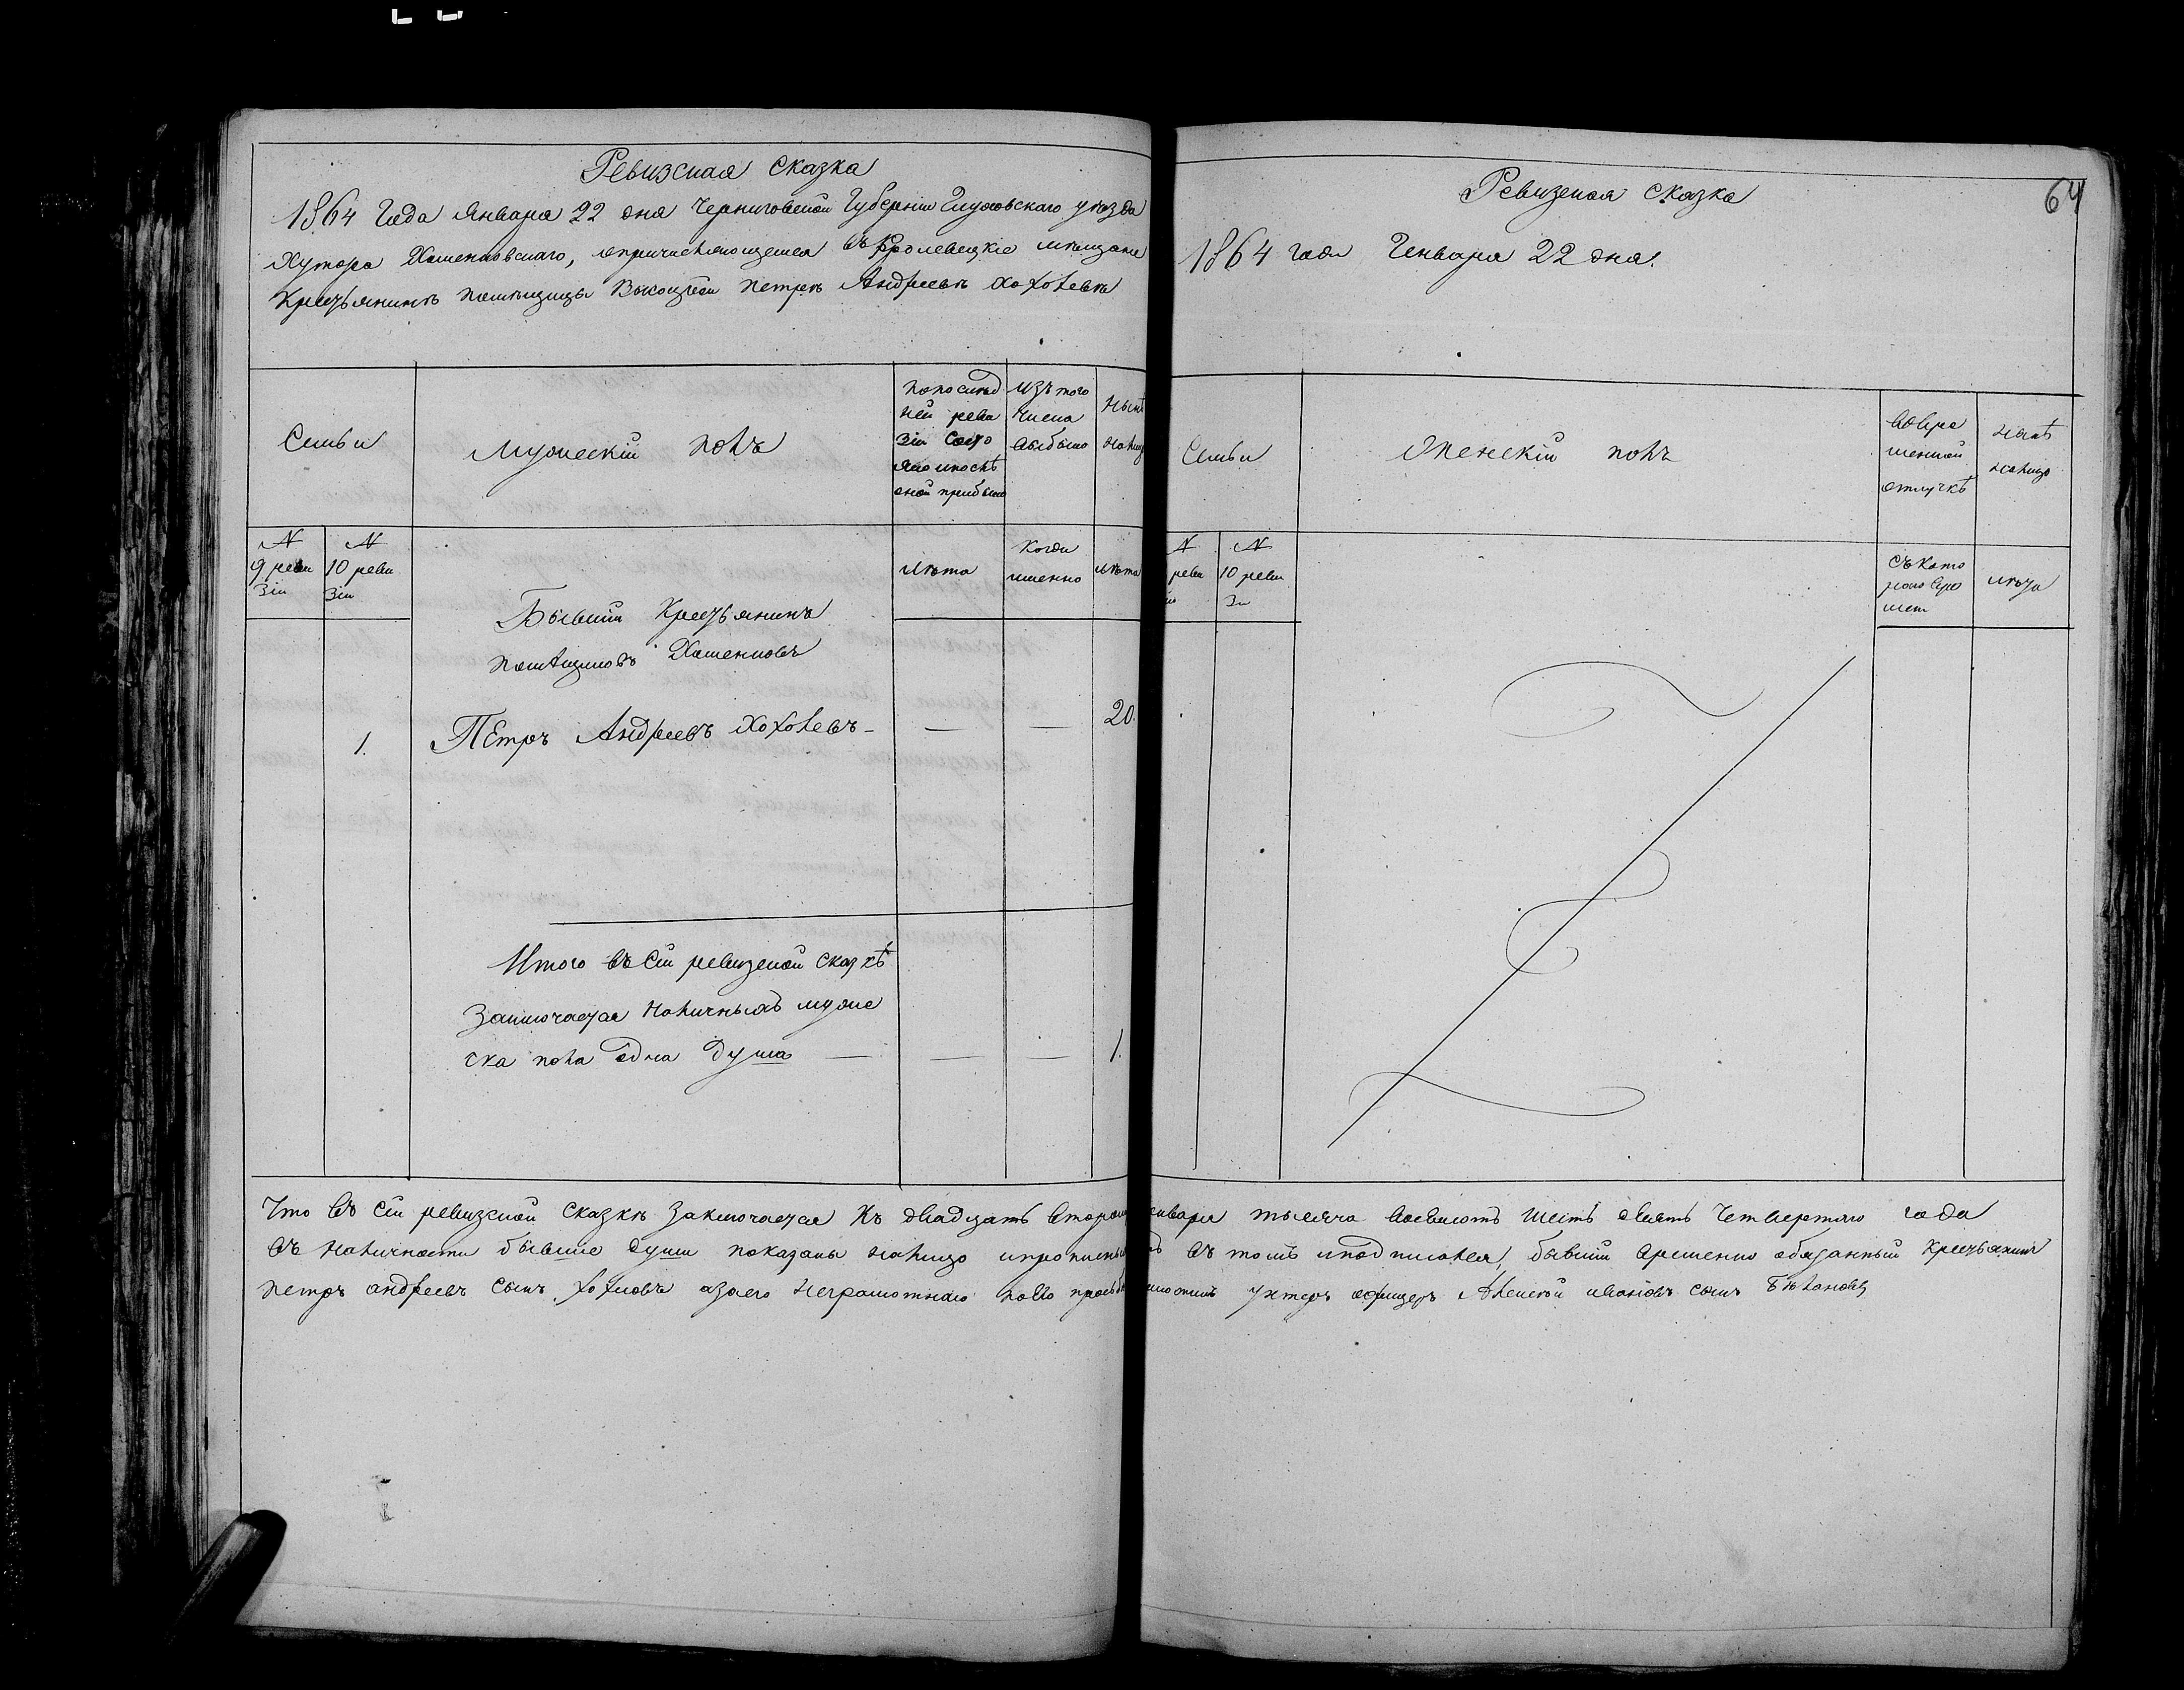 Ревизская сказка
1864 Года Января 22 дня Черниговской Губернии Глуховскаго уѣзда
Хутора опричисляющемся въ Кролевецкіе мѣщане
Крестьянинѣ помѣщицы Петрѣ Андреевѣ Хохолевѣ
Семьи
Мужескій полъ
по послѣд
ней реви
зіи состо
яло и послѣ
оной прибыло
Изъ того
числа
выбыло
Нынѣ
налиц
№
9 реви
зіи
№
10 реви
зіи
Лѣта
Когда
именно
Лѣта
Бывшій Крестьянинъ
помѣщиковъ
1. Петръ Андреевъ Хохолевъ — — — 20.
Итого въ сій ревизской сказкѣ
Заключается Наличныхъ муже
ска пола одна душа — — — 1.
64
Ревизская сказка
1864 года Генваря 22 дня.
Семьи
Женскій полъ
Во вре
менной
отлучкѣ
нынѣ
налицо
№
реви
№
10 реви
зіи
Съ како
лѣта
Что въ сій ревизской сказкѣ Заключается Къ двадцать второму Января тысяча восемьсотъ шестьдесятъ четвертаго года
въ наличности бывшіе души показаны налицо въ томъ и подписался, бывшій временно обязанный крестьянинъ
Петръ андреевъ сынъ Хохловъ а за его неграмотнаго по его прозьбѣ унтеръ офицеръ Алексѣй ивановъ сынъ